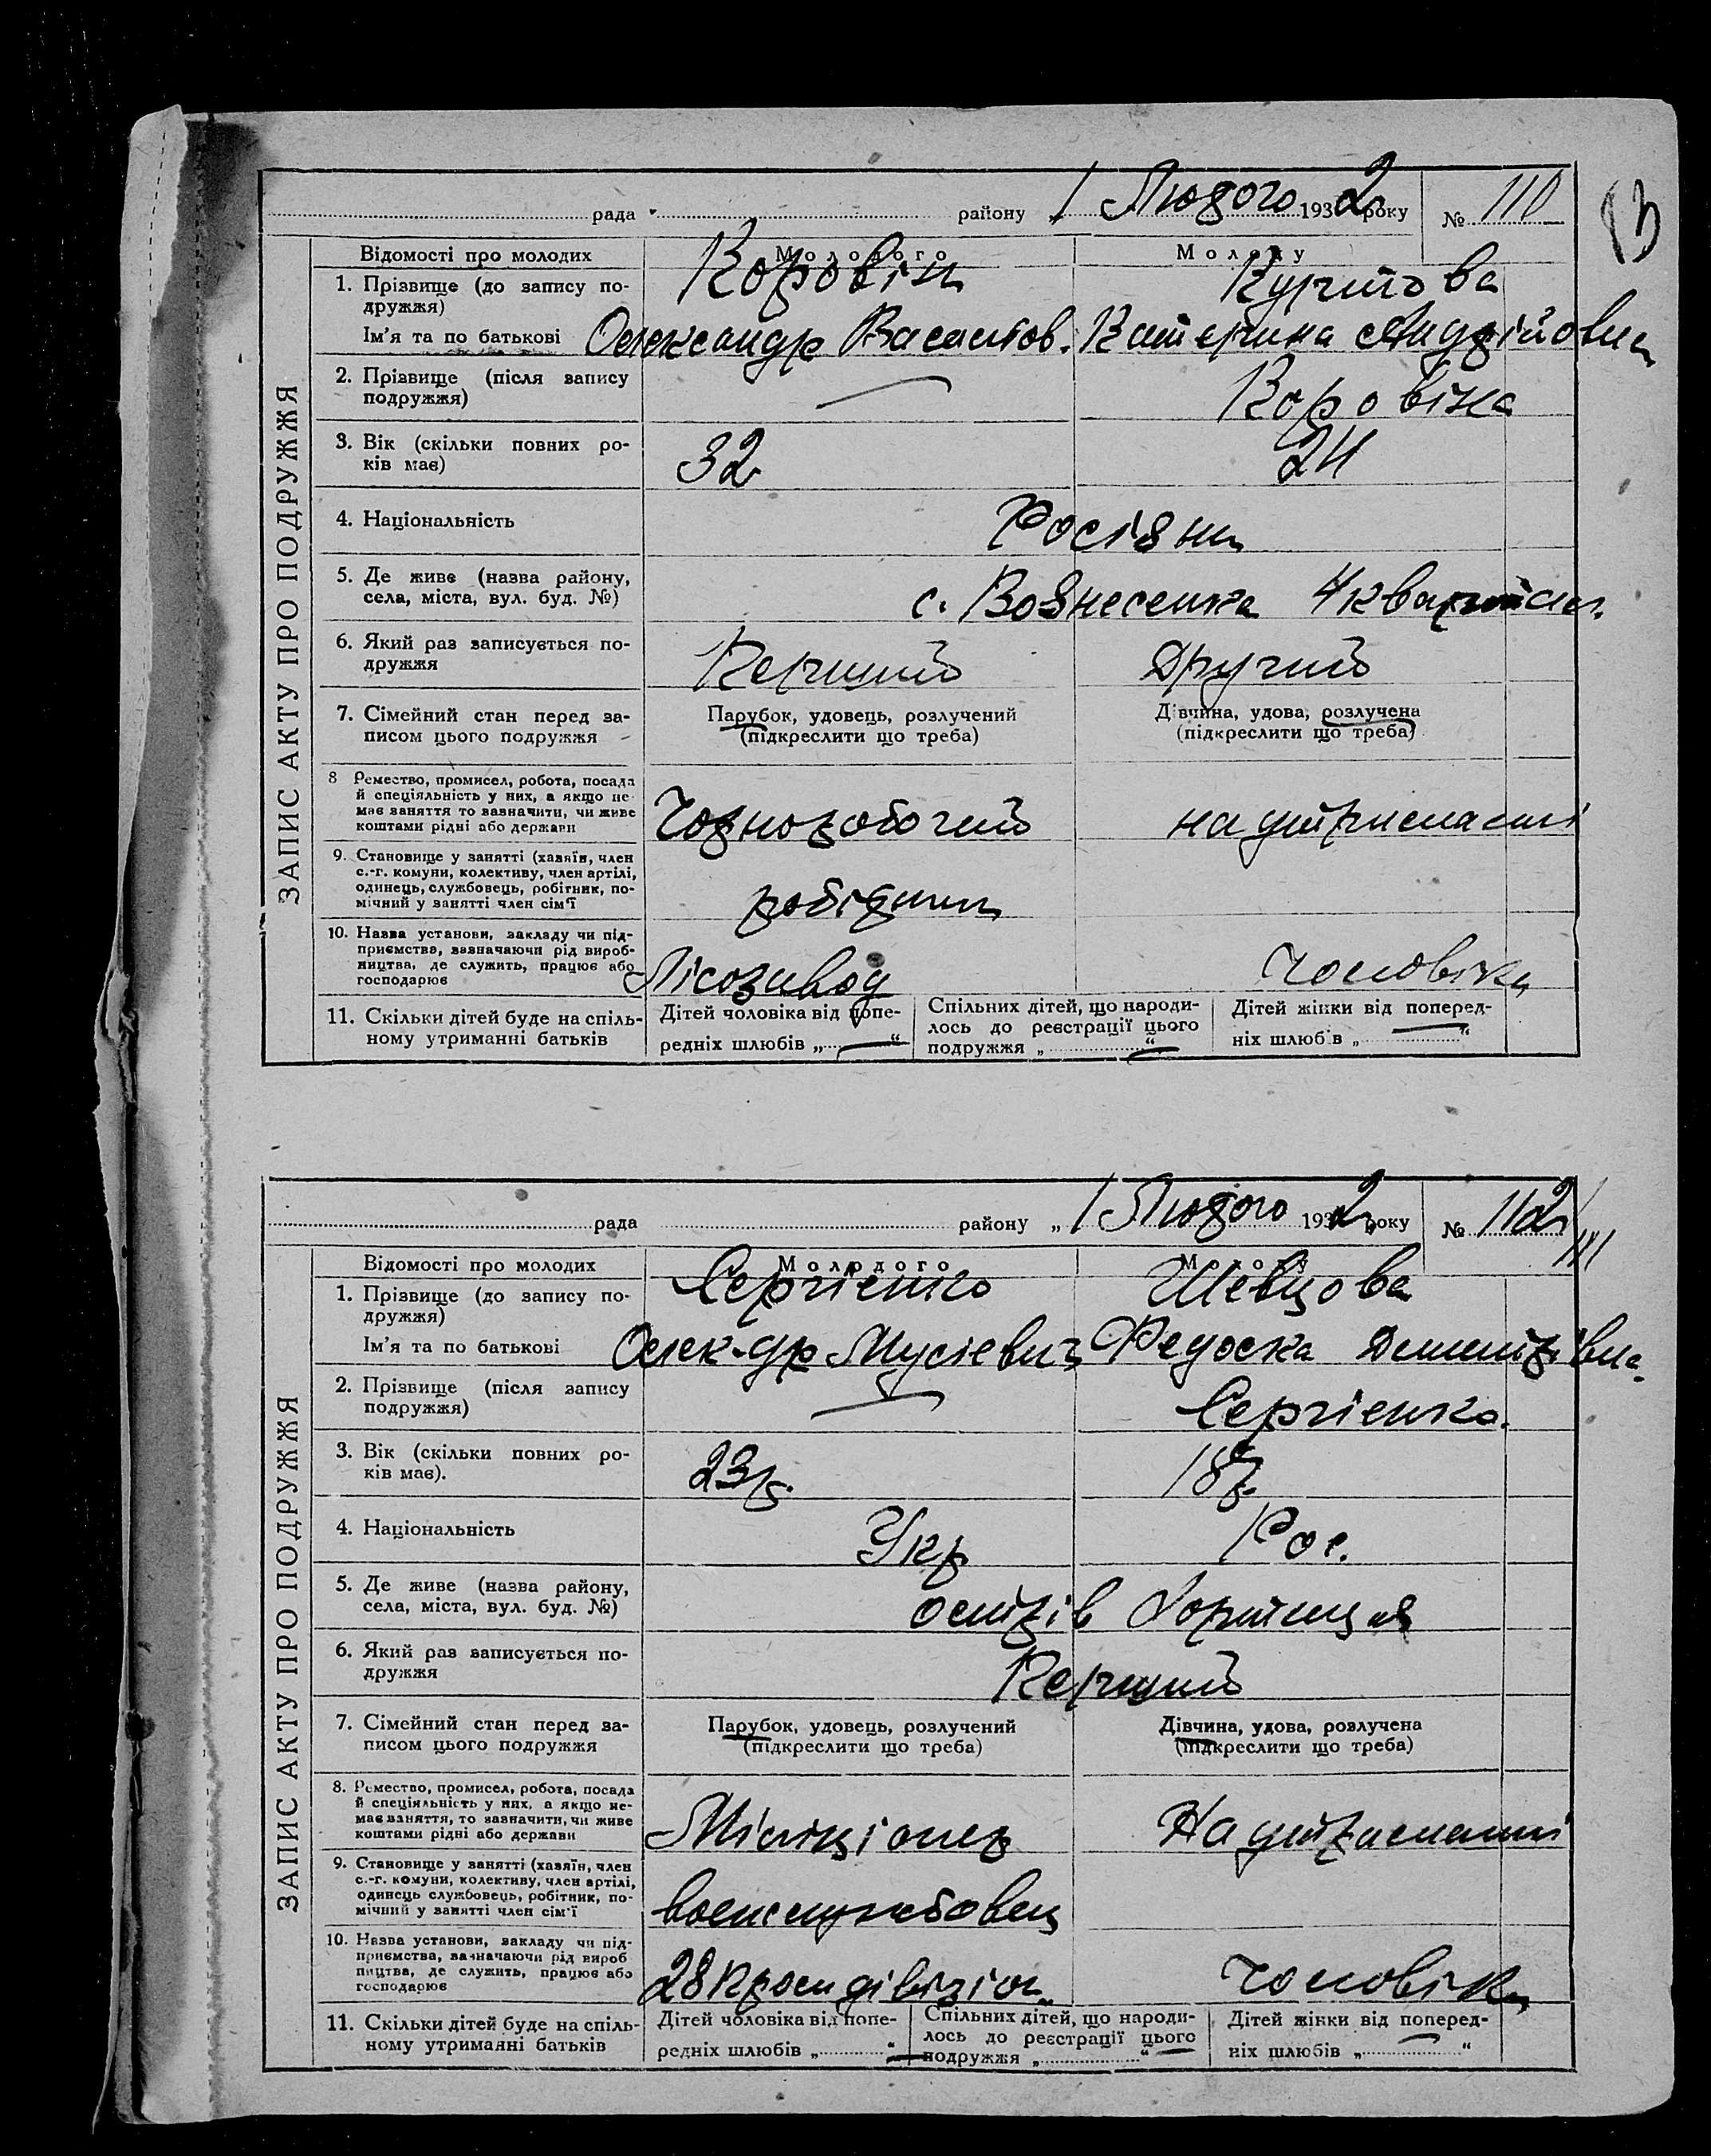 рада районy 1 Лютого 1932 року № 110
13
ЗАПИС АКТУ ПРО ПОДРУЖЖЯ
Відомості про молодих Молодого Молоду
1. Прізвище (до запису по- Коровін
дружжя)
Ім'я та по батькові Олександр Катерина Андріївна
2. Прізвище (після запису — Коровіна
подружжя)
3. Вік (скільки повних ро- 32 24
ків має)
4. Національність Росіяни
5. Де живе (назва району, с. Вознесенка 4
села, міста, вул. буд. №)
6. Який раз записується по- Перший Другий
дружжя
7. Сімейний стан перед за- Парубок, удовець, розлучений Дівчина, удова, розлучена
писом цього подружжя (підкреслити що треба) (підкреслити що треба)
8 Ремество, промисел, робота, посада
й спеціяльність у них, а якщо не-
має заняття то зазначити, чи живе Чорноробочий на утриманні
коштами рідні або держави
9. Становище у занятті (хазяїн, член
с.-г. комуни, колективу, член артілі,
одинець, службовець, робітник, по- робітник
мічний у занятті член сім'ї
10. Назва установи, закладу чи під-
приємства, зазначаючи рід вироб-
ництва, де служить, працює або Лісозавод чоловіка
господарює
11. Скільки дітей буде на спіль- Дітей чоловіка від попе- Спільних дітей, що народи- Дітей жінки від поперед-
ному утриманні батьків редніх шлюбів „ — “ лось до реєстрації цього ніх шлюбів „ — “
подружжя „ — “
рада району „ 1 Лютого 1932 року № 112
111
ЗАПИС АКТУ ПРО ПОДРУЖЖЯ
Відомості про молодих Молодого Молоду
1. Прізвище (до запису по- Сергієнко Шевцова
дружжя)
Ім'я та по батькові Олек-др Мусієвич Федоска Дмитрівна
2. Прізвище (після запису — Сергієнко.
подружжя)
3. Вік (скільки повних ро- 23 р. 18 р.
ків має).
4. Національність Укр Рос.
5. Де живе (назва району, острів Хортиця
села, міста, вул. буд. №)
6. Який раз записується по- Перший
дружжя
7. Сімейний стан перед за- Парубок, удовець, розлучений Дівчина, удова, розлучена
писом цього подружжя (підкреслити що треба) (підкреслити що треба)
8. Ремество, промисел, робота, посада
й спеціяльність у них, а якщо не-
має заняття, то зазначити, чи живе Міліціонер На утриманні
коштами рідні або держави
9. Становище у занятті (хазяїн, член
с.-г. комуни, колективу, член артілі,
одинець службовець, робітник, по- воєнслужбовец
мічний у занятті член сім'ї
10. Назва установи, закладу чи під-
приємства, зазначаючи рід вироб
ництва, де служить, працює або 28 чоловіка
господарює
11. Скільки дітей буде на спіль- Дітей чоловіка від попе- Спільних дітей, що народи- Дітей жінки від поперед-
ному утриманні батьків редніх шлюбів „ — “ лось до реєстрації цього ніх шлюбів „ — “
подружжя „ — “